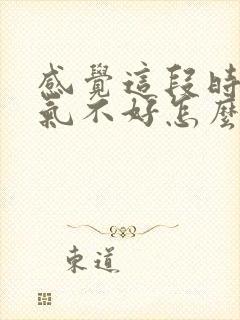 感覺這段時
氣不好怎麼
東道